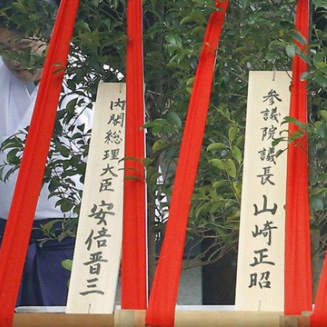 参議院議長 山崎正昭
内閣総理大臣 安倍晋三